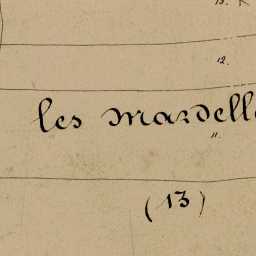 13.
12.
les Mardelle
11.
(13)